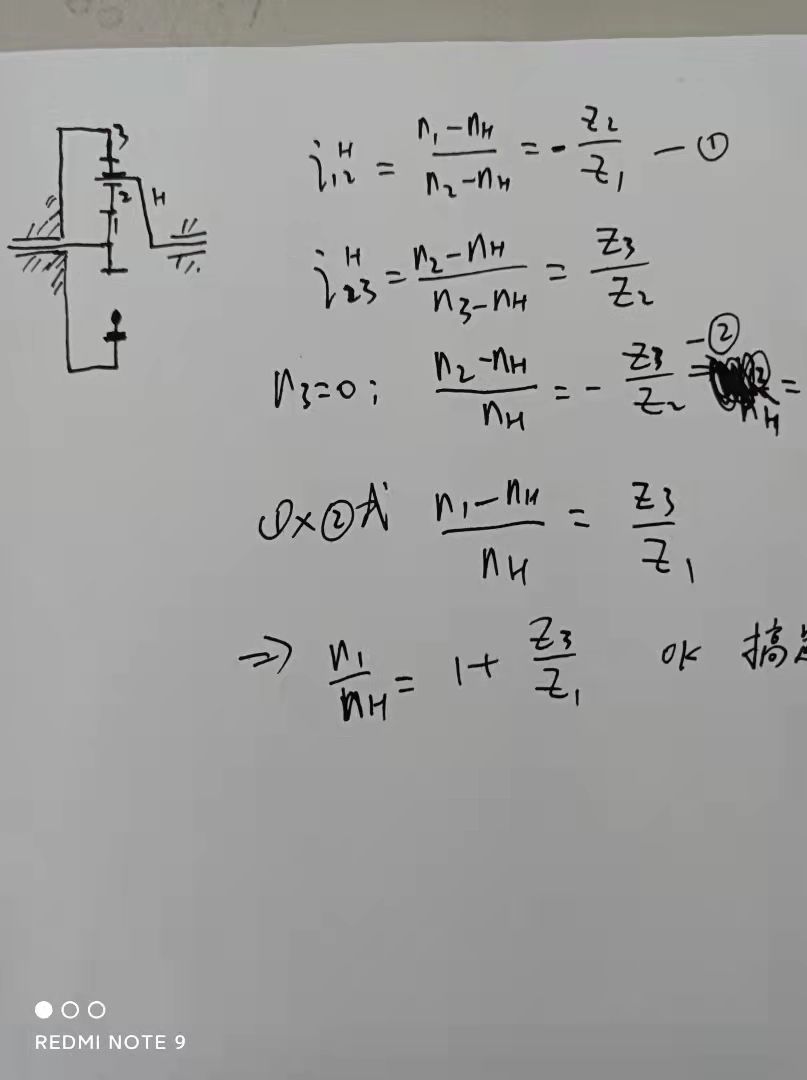 3
2 H
1
i₁₂ᴴ = (n₁-nH)/(n₂-nH) = - z₂/z₁ — ①
i₂₃ᴴ = (n₂-nH)/(n₃-nH) = z₃/z₂
n₃=0; (n₂-nH)/nH = - z₃/z₂ - ②
= nH =
①×② (n₁-nH)/nH = z₃/z₁
=> n₁/nH = 1+ z₃/z₁ OK 搞
REDMI NOTE 9